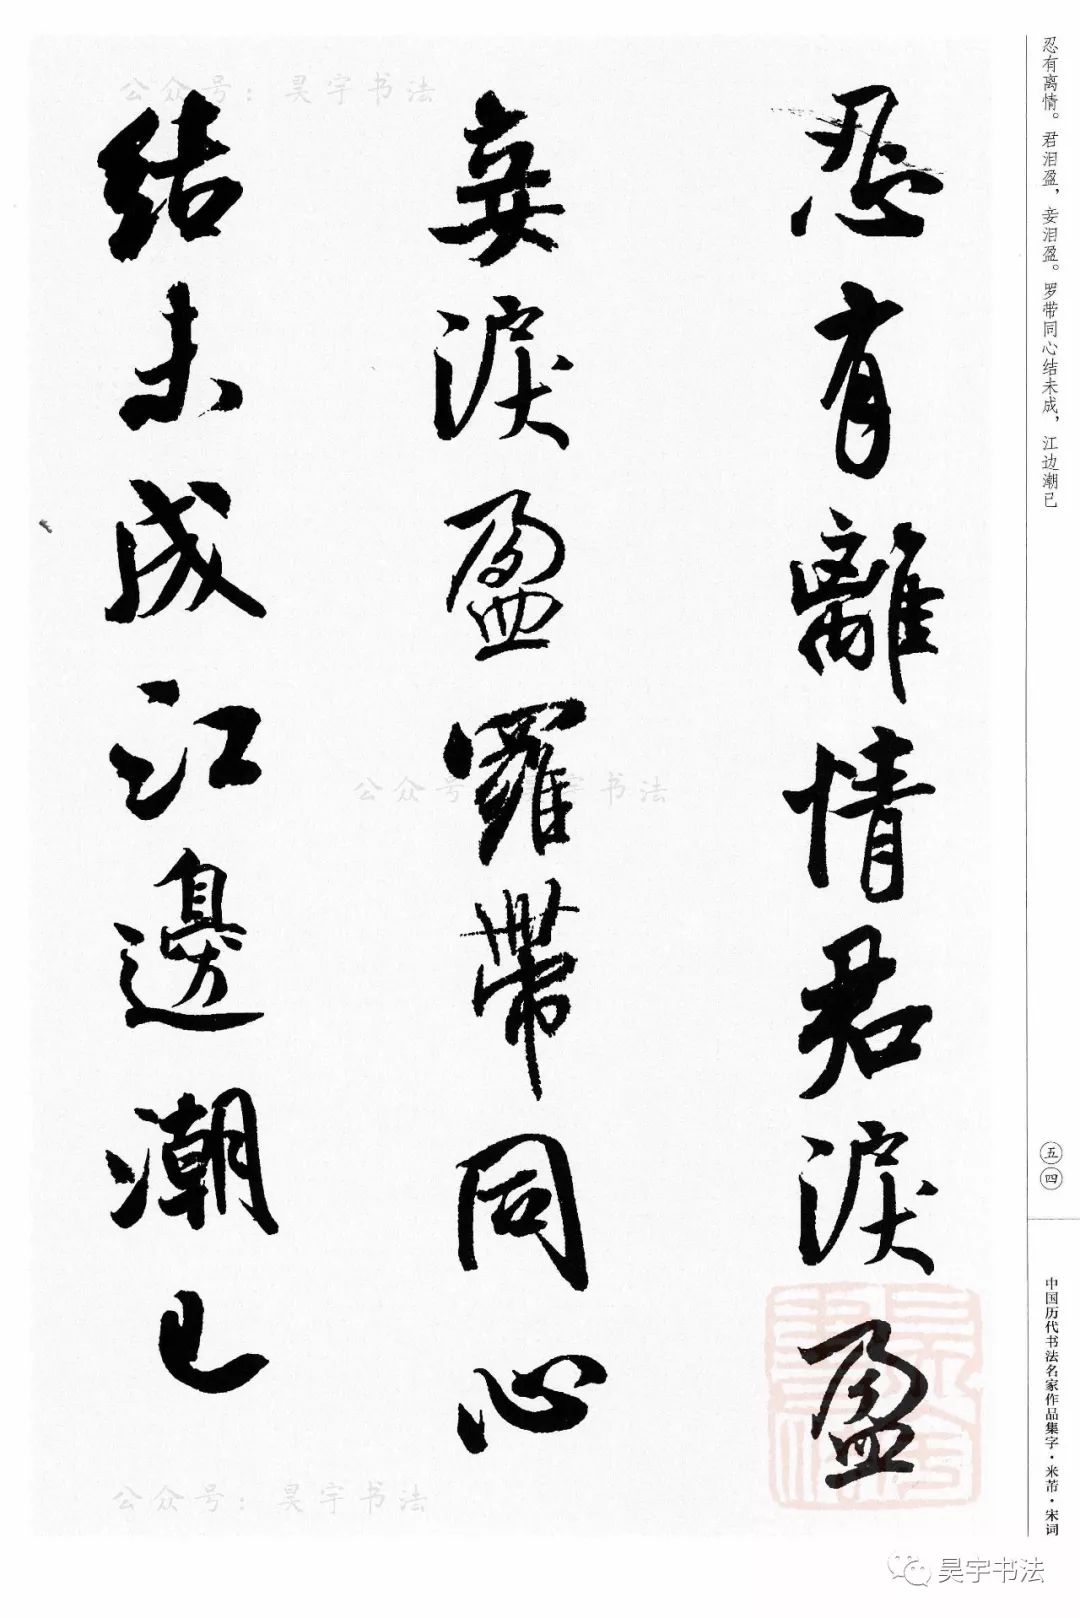 忍有离情。君泪盈，妾泪盈。罗带同心结未成，江边潮已
五四
中国历代书法名家作品集字·米芾·宋词
忍有離情君淚盈
妾淚盈羅帶同心
結未成江邊潮已
公众号：昊宇书法
公众号：昊宇书法
公众号：昊宇书法
昊宇书法